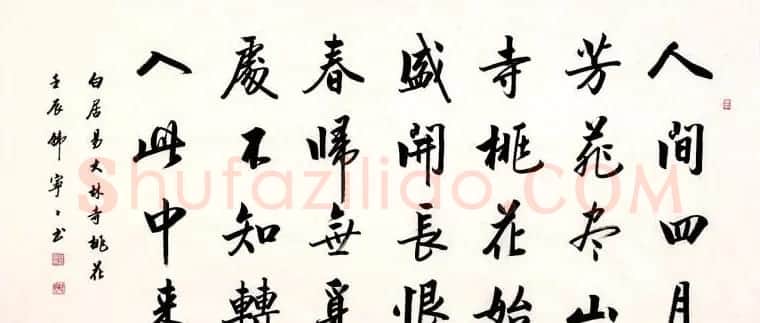 人間四月
芳菲尽山
寺桃花始
盛開長恨
春歸無覓
處不知轉
入此中来
白居易大林寺桃花
壬辰韩寧〻书
Shufaziliao.COM